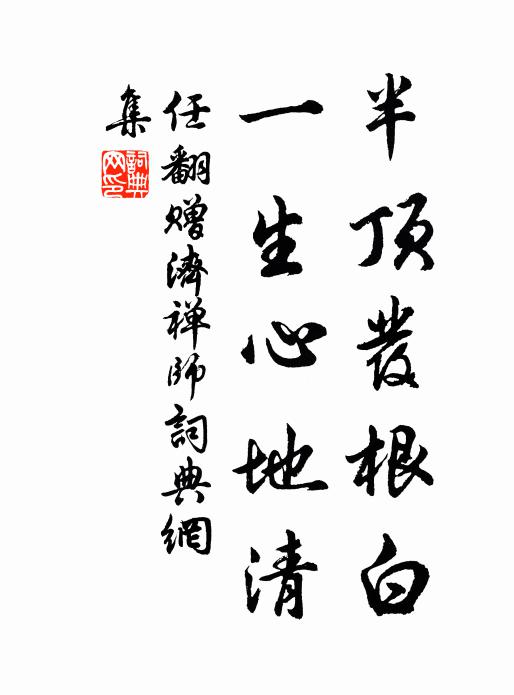 半顶發根白
一生心地清
任翻赠濟禅師詞典網
集
詞典
网印